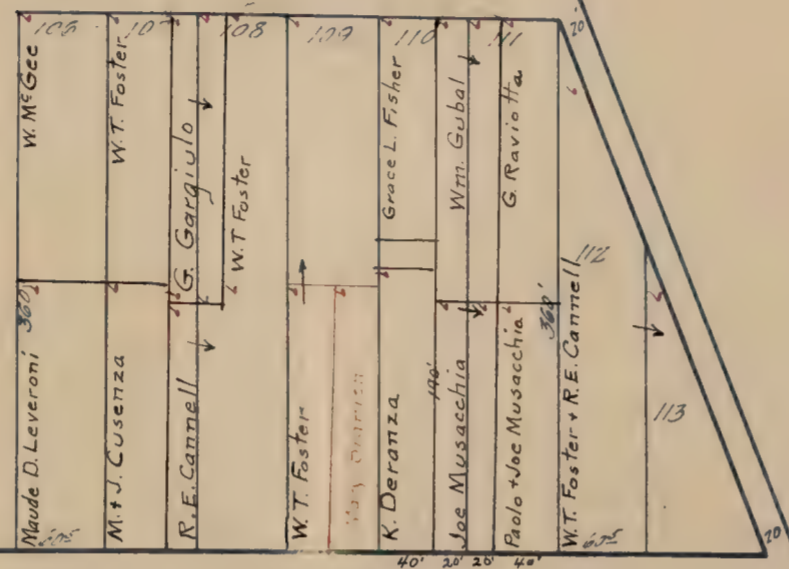 107
108
109
110
111
20'
W. McGee
W.T. Foster
G. Gargiulo
W.T Foster
Grace L. Fisher
Wm. Gubal
G. Raviotta
112
360'
360'
Maude D. Leveroni
M. + J. Cusenza
R. E. Cannell
W.T. Foster
K. Deranza
190'
Joe Musacchia
Paolo + Joe Musacchia
W.T. Foster + R.E. Cannell
113
40'
20'
20'
40'
20